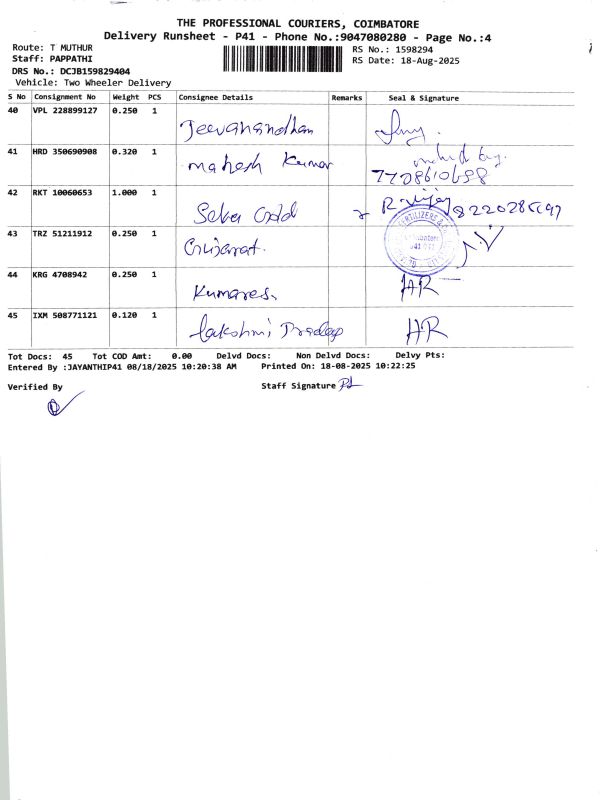 THE PROFESSIONAL COURIERS, COIMBATORE
Delivery Runsheet - P41 - Phone No.:9047080280 - Page No.:4
Route: T MUTHUR
Staff: PAPPATHI
DRS No.: DCJB159829404
Vehicle: Two Wheeler Delivery
RS No.: 1598294
RS Date: 18-Aug-2025
S No Consignment No Weight PCS Consignee Details Remarks Seal & Signature
40 VPL 228899127 0.250 1 Jeevanandham
41 HRD 350690908 0.320 1 Mahesh Kumar 7708610698
42 RKT 10060653 1.000 1 R. Vijay
43 TRZ 51211912 0.250 1 Gujarat.
44 KRG 4708942 0.250 1 Kumares. HR
45 IXM 508771121 0.120 1 Lakshmi Pradeep HR
Tot Docs: 45 Tot COD Amt: 0.00 Delvd Docs: Non Delvd Docs: Delvy Pts:
Entered By :JAYANTHIP41 08/18/2025 10:20:38 AM Printed On: 18-08-2025 10:22:25
Verified By Staff Signature